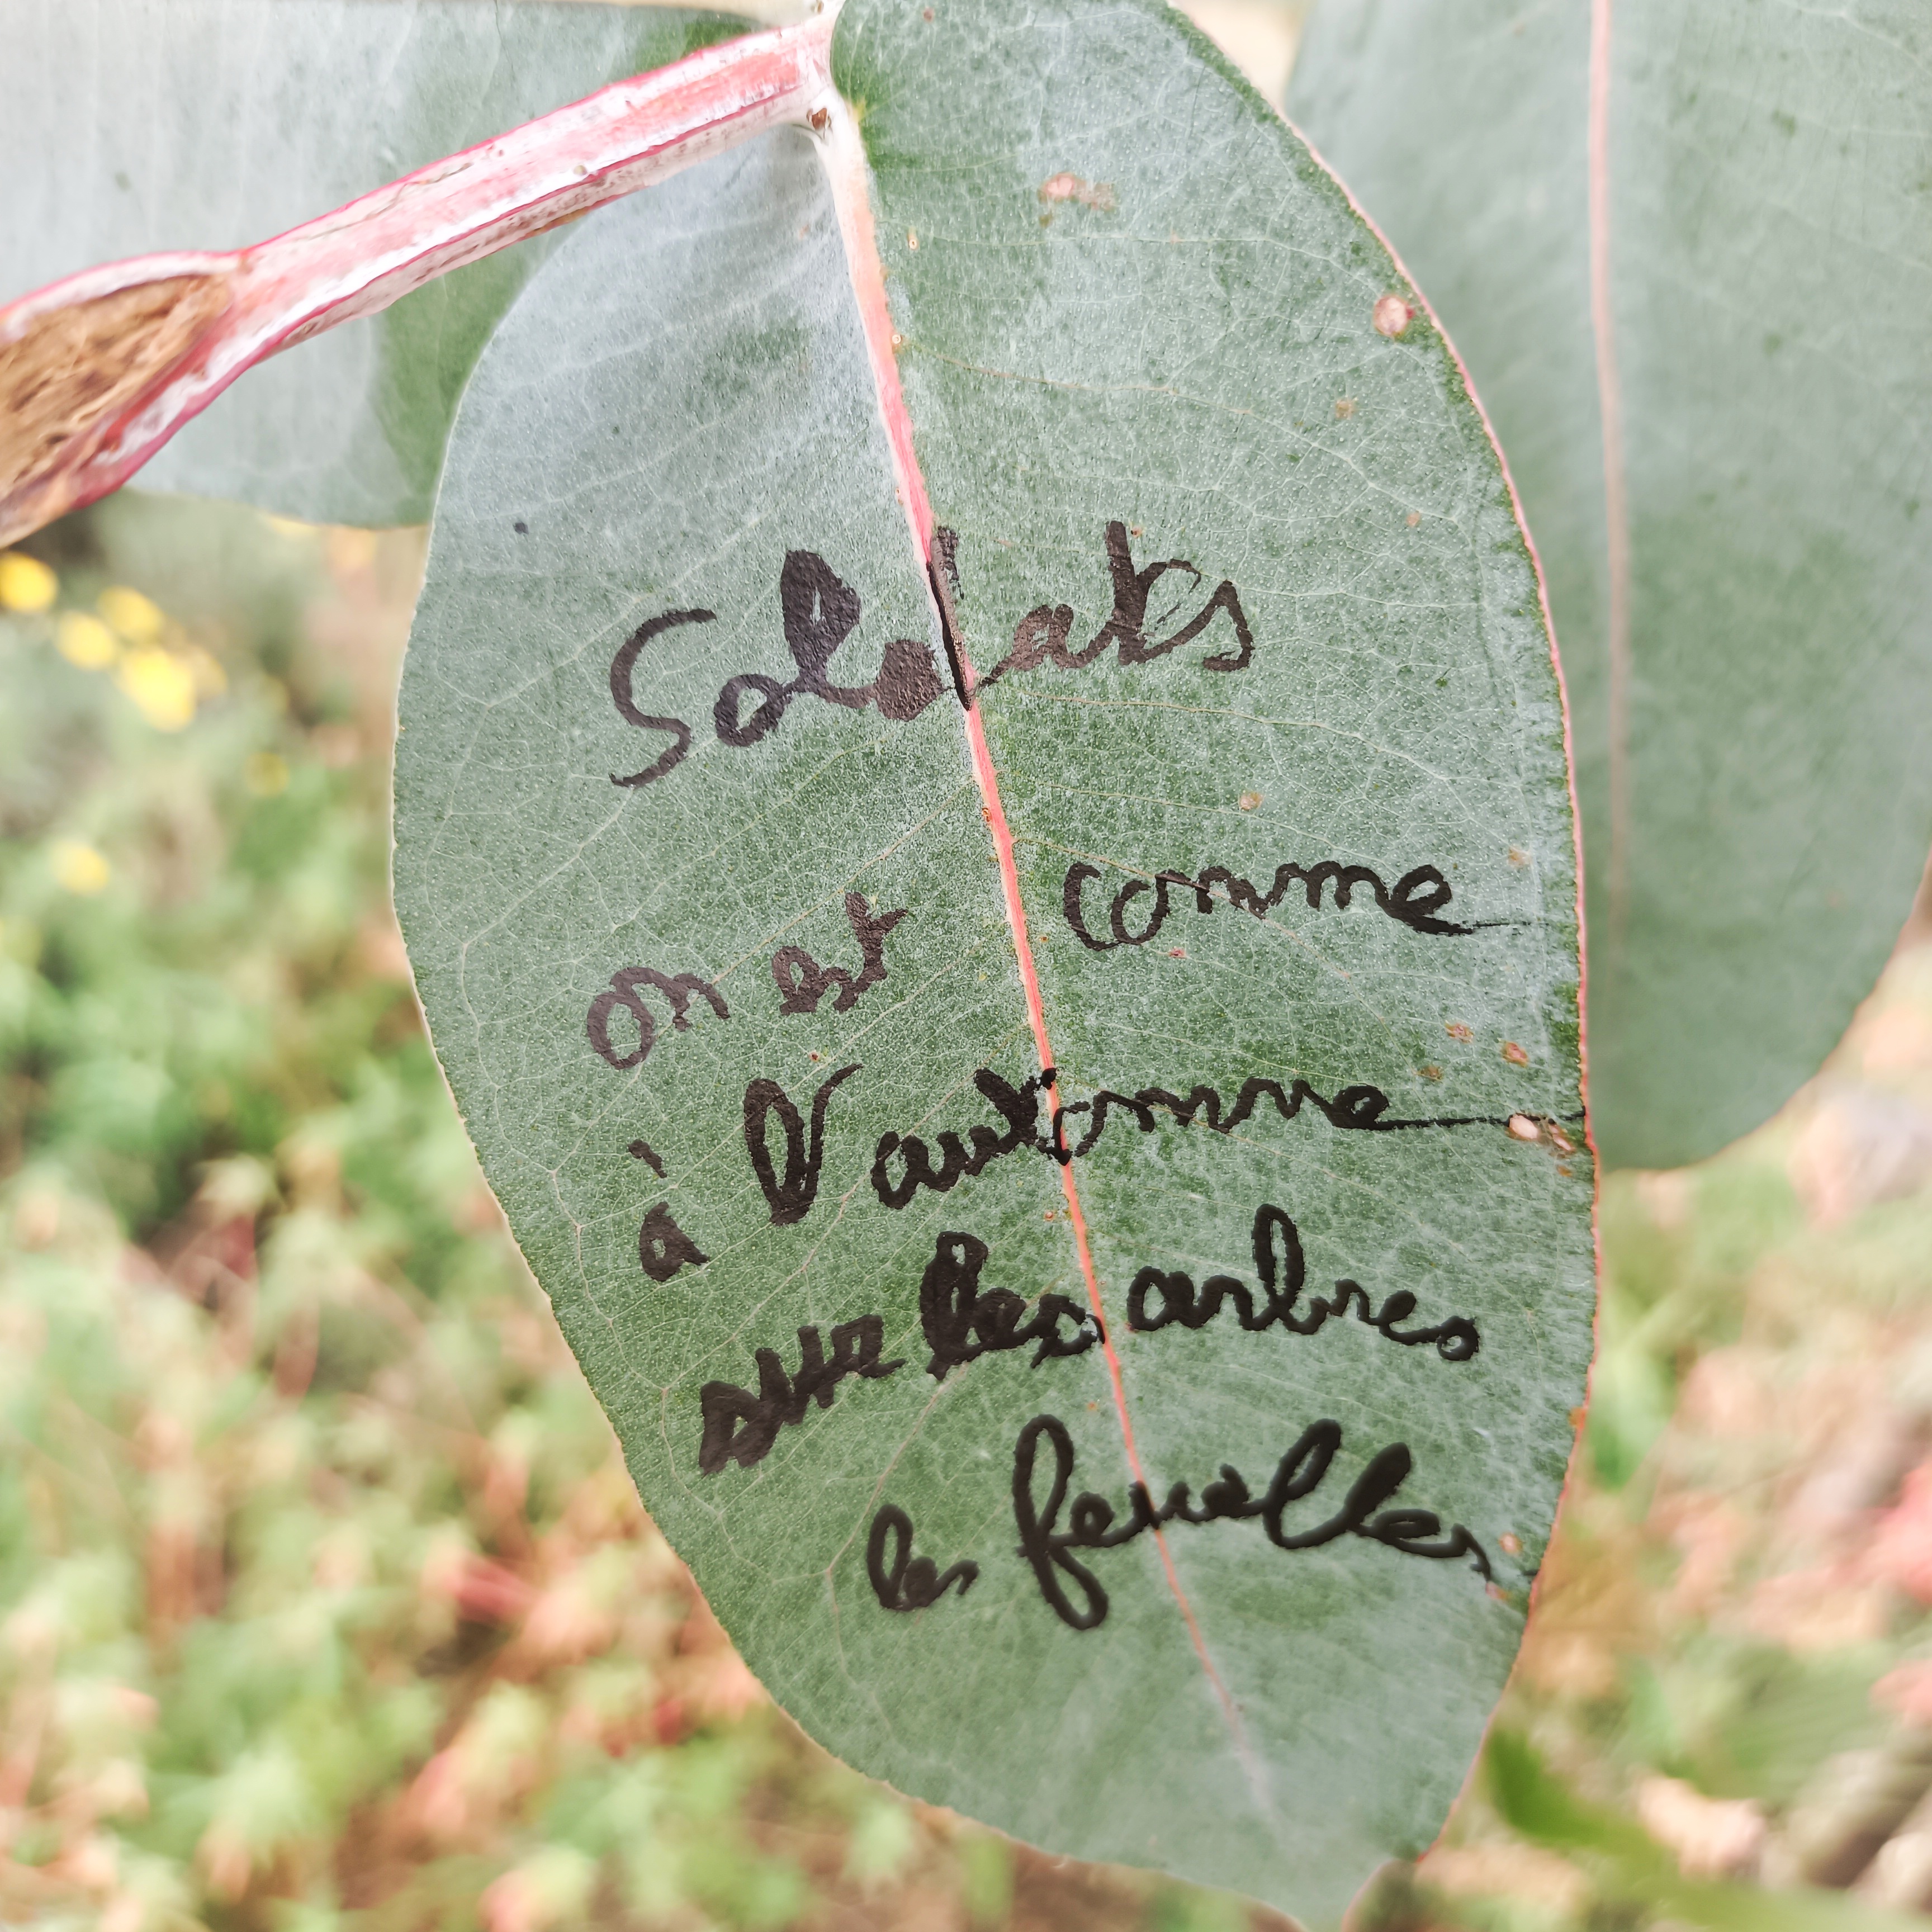 Soldats
on est comme
à l'automne
sur les arbres
les feuilles